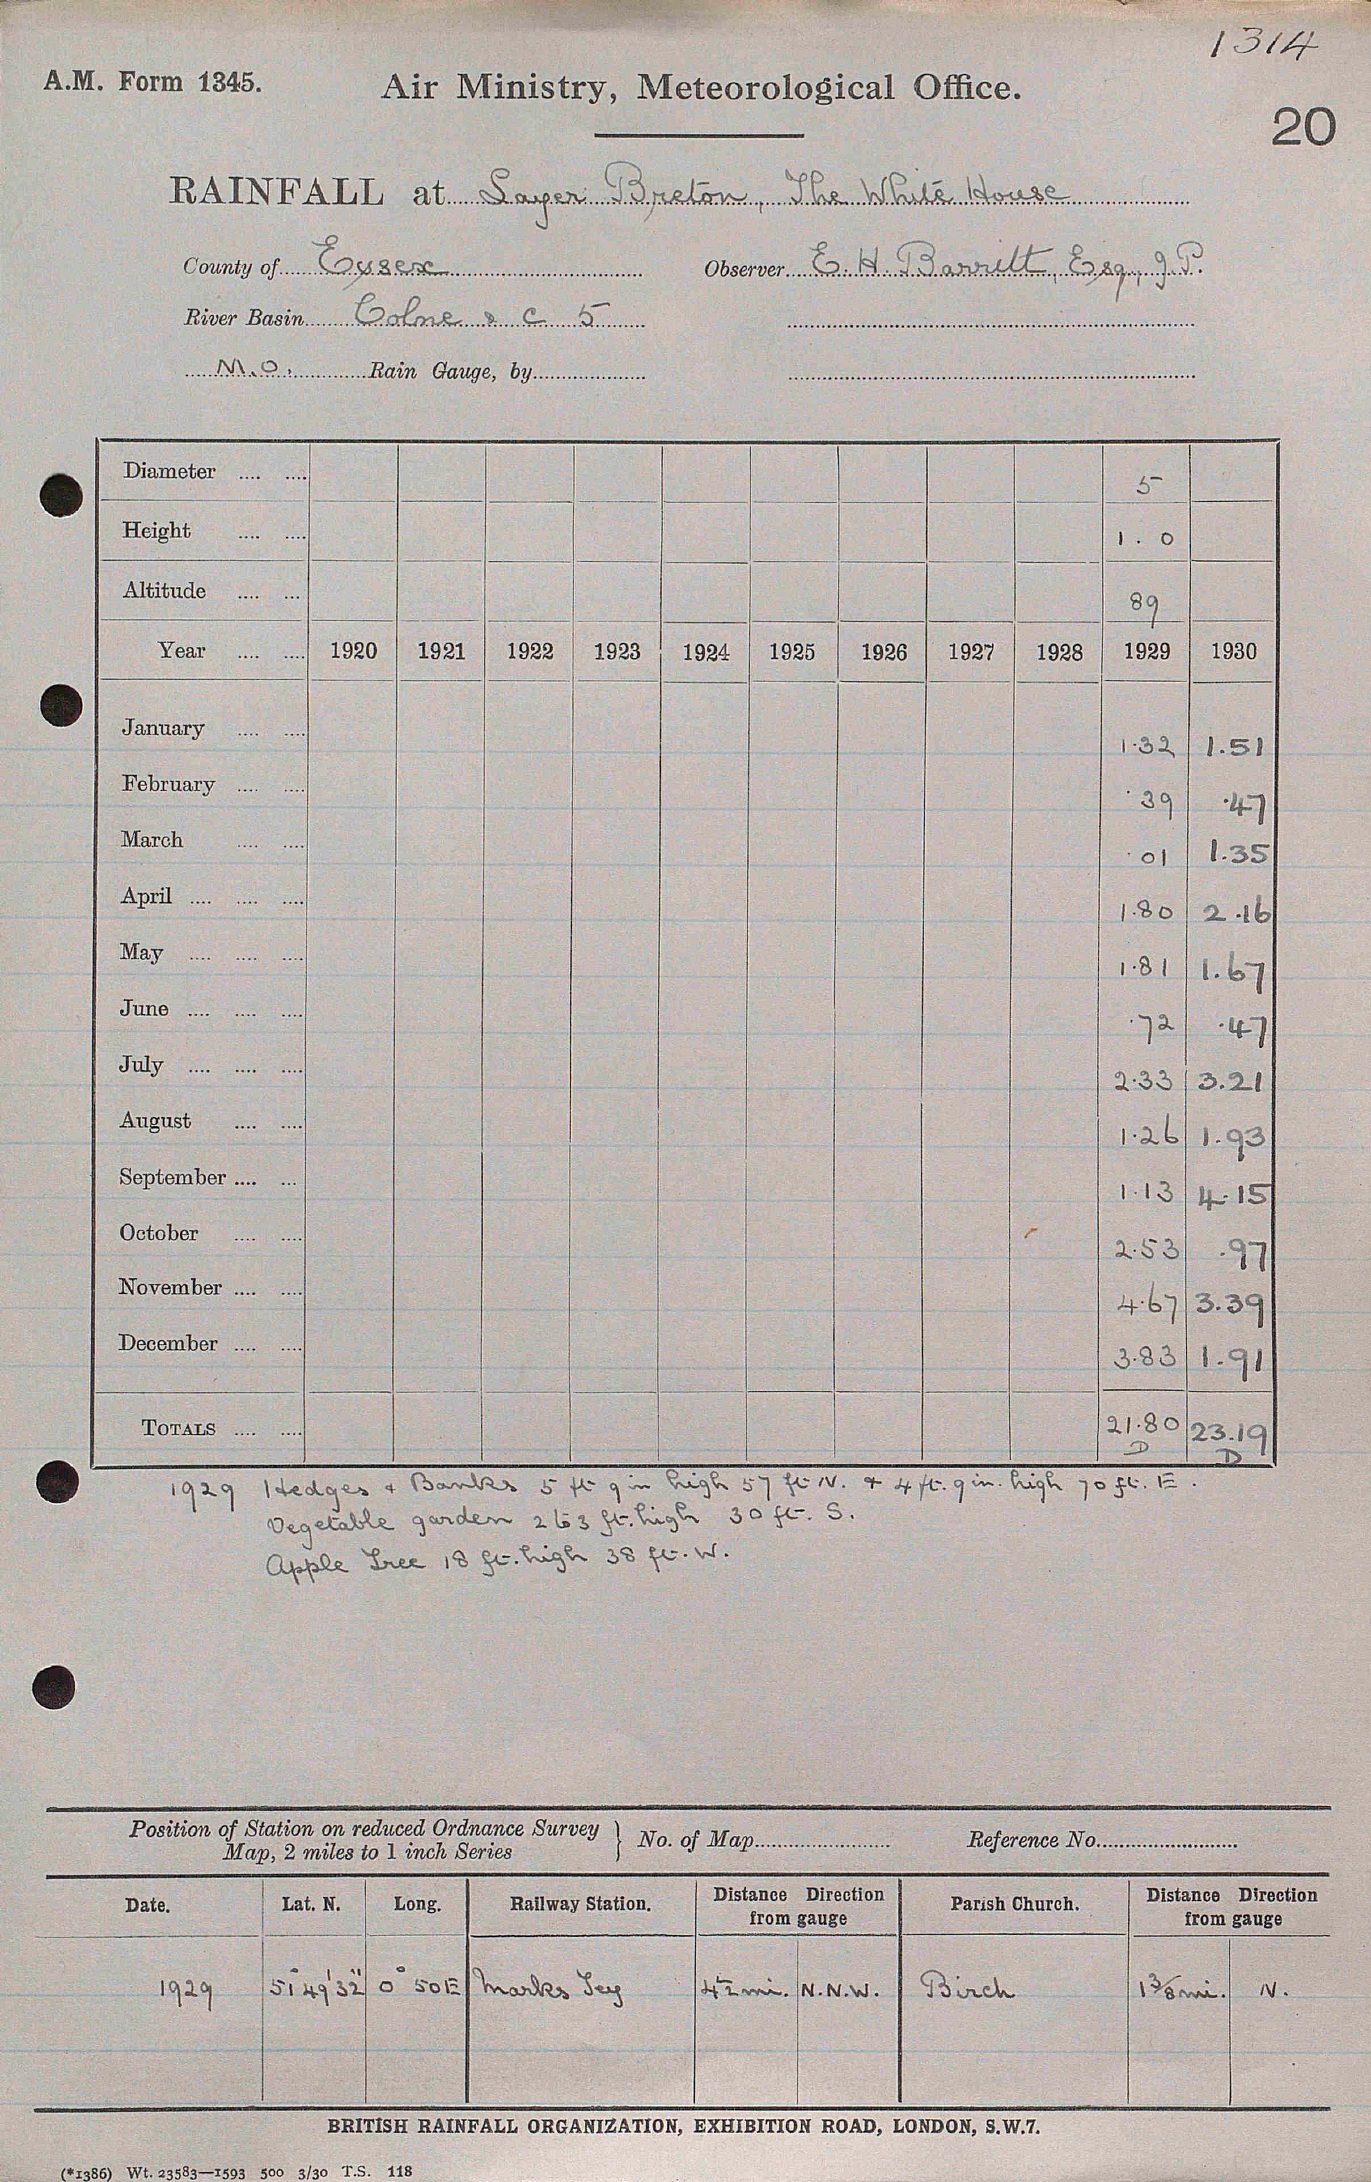 1314
A.M. Form 1345. Air Ministry, Meteorological Office.
20
RAINFALL at Layer Breton, The White House
County of Essex Observer E. H. Barritt, Esq., J.P.
River Basin Colne & C 5
M.O. Rain Gauge, by
Diameter 5
Height 1.0
Altitude 89
Year 1920 1921 1922 1923 1924 1925 1926 1927 1928 1929 1930
January 1.32 1.51
February .39 .47
March .01 1.35
April 1.80 2.16
May 1.81 1.67
June .72 .47
July 2.33 3.21
August 1.26 1.93
September 1.13 4.15
October 2.53 .97
November 4.67 3.39
December 3.83 1.91
TOTALS 21.80 23.19
D D
1929 Hedges & Banks 5 ft 9 in high 57 ft N. & 4 ft. 9 in. high 70 ft. E.
Vegetable garden 2 to 3 ft. high 30 ft. S.
Apple Tree 18 ft. high 38 ft. W.
Position of Station on reduced Ordnance Survey Map, 2 miles to 1 inch Series } No. of Map Reference No.
Date. Lat. N. Long. Railway Station. Distance Direction from gauge Parish Church. Distance Direction from gauge
1929 51° 49' 32" 0° 50 E Marks Tey 4½ mi. N.N.W. Birch 1⅜ mi. N.
BRITISH RAINFALL ORGANIZATION, EXHIBITION ROAD, LONDON, S.W.7.
(*1386) Wt. 23583—1593 500 3/30 T.S. 118